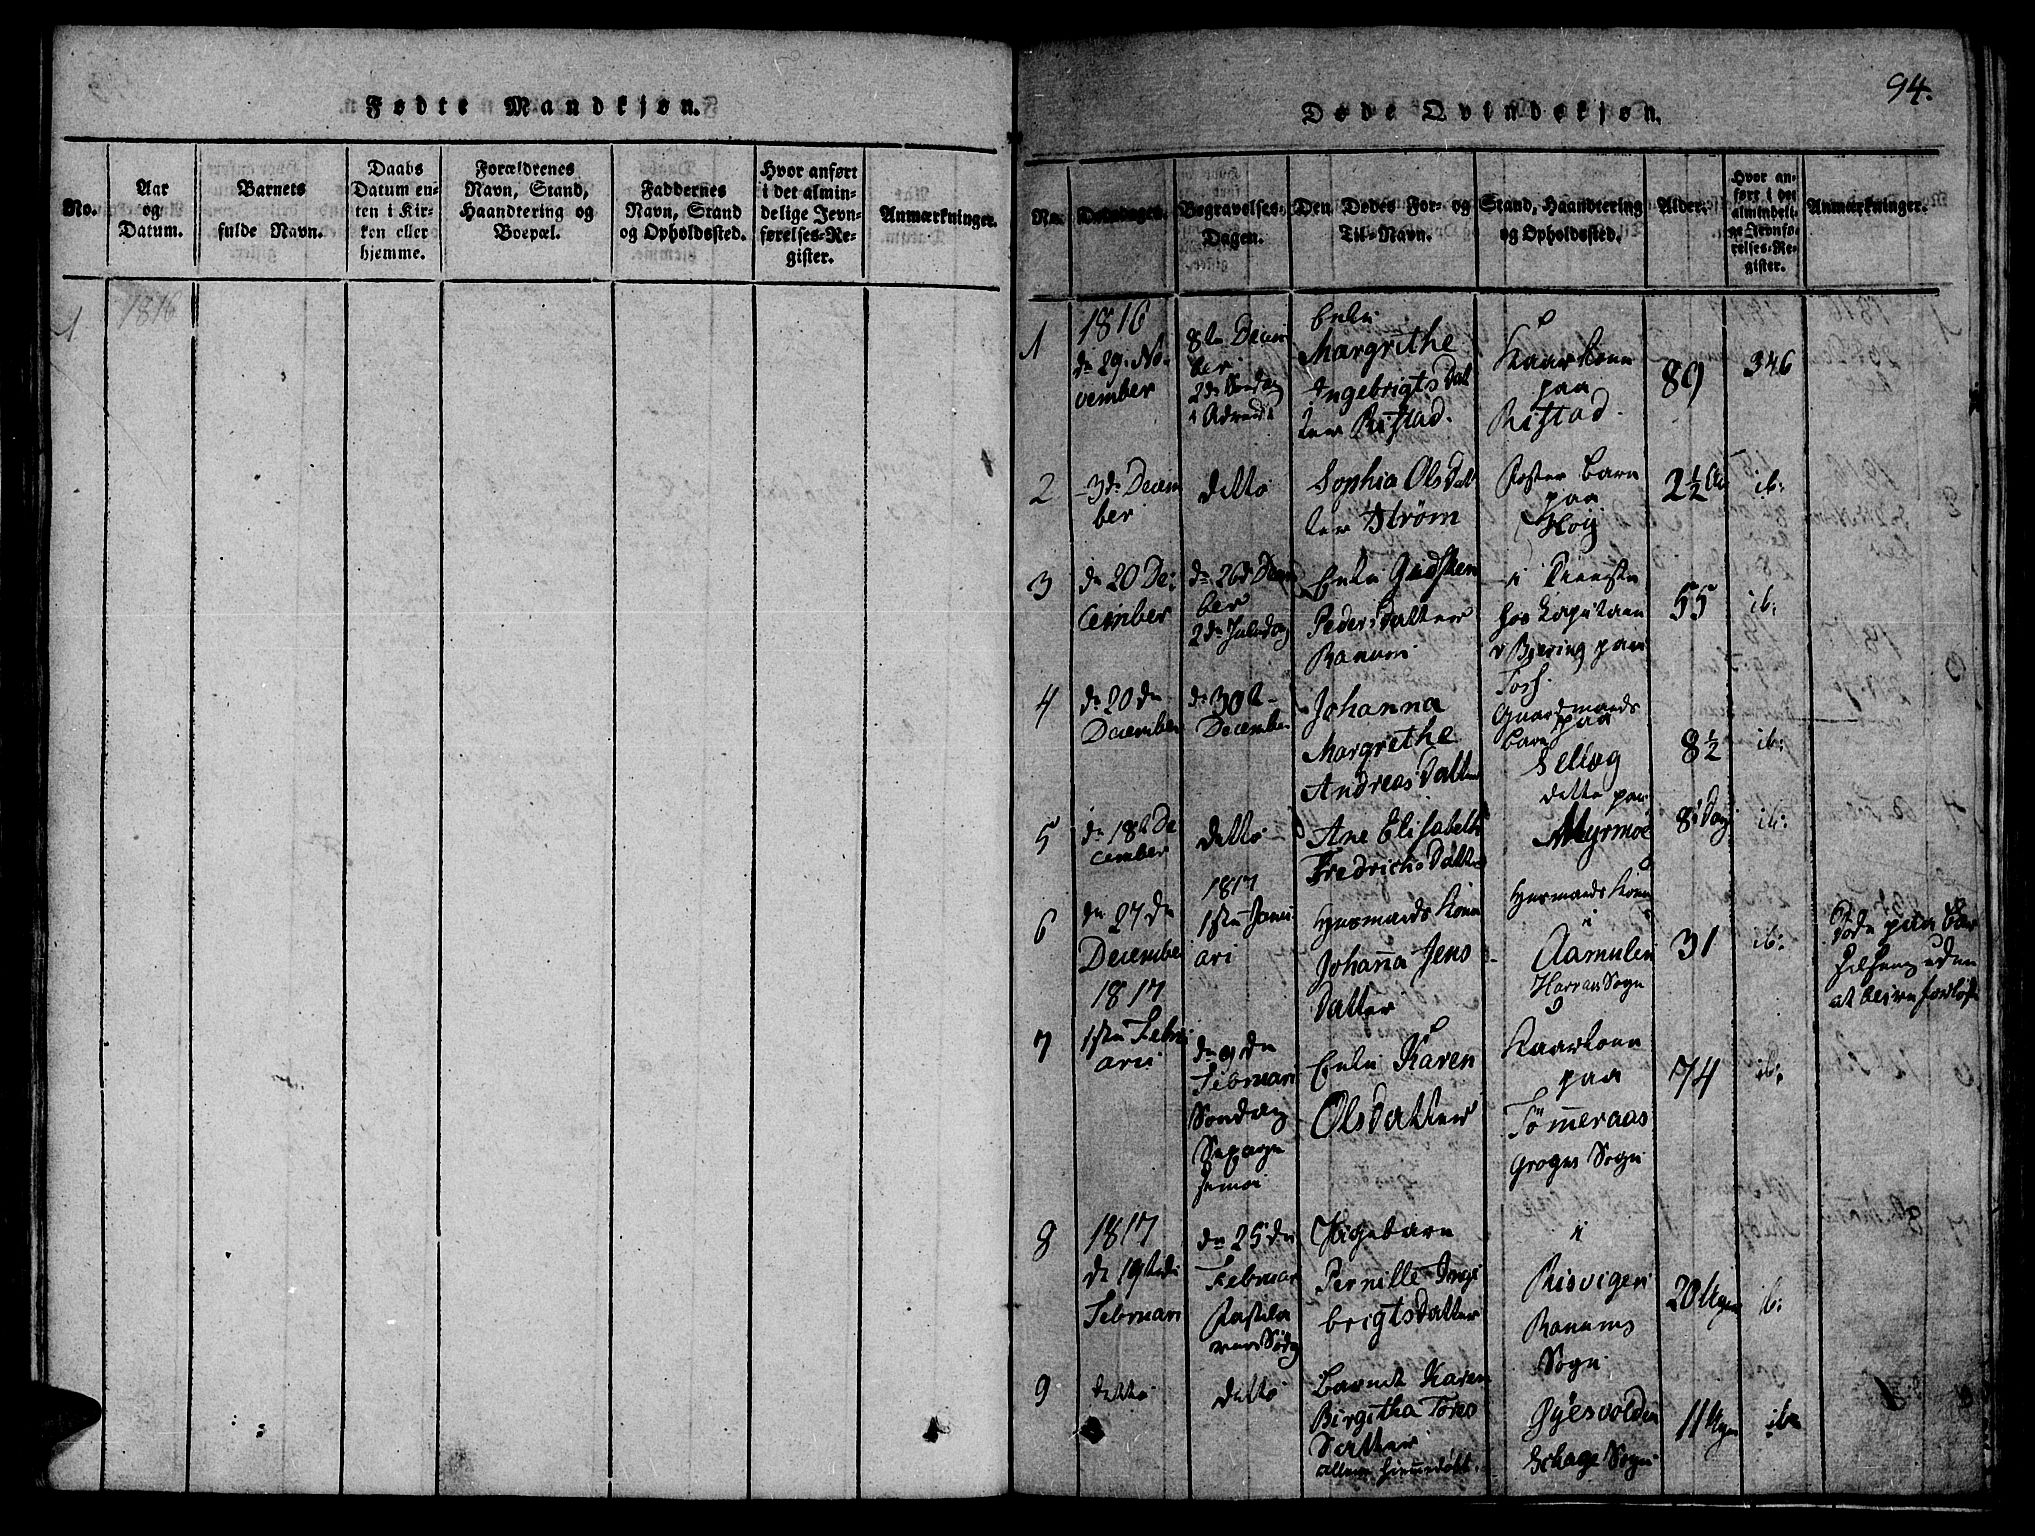 Fødte Mandkjøn.
No.
Aar
og
Datum.
Barnets
fulde Navn.
Daabs
Datum en-
ten i Kir-
ken eller
hjemme.
Forældrenes
Navn, Stand,
Haandtering og
Boepæl.
Faddernes
Navn, Stand
og Opholdssted.
Hvor anført
i det almin-
delige Jevn-
førelses-Re-
gister.
Anmærkninger.
1
1816
94.
Døde Qvindekjøn.
No.
Dødsdagen.
Begravelses-
Dagen.
Den Dødes For- og
Til-Navn.
Stand, Haandtering
og Opholdssted.
Alder.
Hvor an-
ført i det
almindeli-
ge Jevnfø-
relses-Re-
gister.
Anmærkninger.
1
1816
dn 29. No-
vember
8de Decem
ber
2de Søndag
i Advent
Enke
Margrithe
Ingebrigts Dat
ter Ristad.
Kaarkone
paa
Ristad.
89
346
2
3de Decem
ber
ditto
Sophia Ols Dat
ter Strøm
Foster Barn
paa
Høy
2½ Aar
ib:
3
dn 20 De-
cember
dn 26de Decem
ber
2de Juledag
Enke
Peders Datter
Ranum
i Tieneste
hos Kapitain
v Bjering paa
Fosh.
55
ib:
4
dn 20de
December
dn 30te
December
Johanna
Margrethe
Andreas Datter
Gaardmands
Barn paa
Seliæg
8½
ib:
5
dn 18de De
cember
ditto
Ane Elisabeth
Fredrichs Datter
ditto paa
Myrmoe
8 Dage
ib:
6
dn 27de
December
1817
1ste Janu
ari
Huusmands Kone
Johanna Jens
Datter
Huusmands Kone
i
Aamulen
Harrans Sogn
31
ib:
Døde paa Bar
selseng uden
at blive forløst
7
1817
1ste Febru
arii
dn 9de
Februari
Søndag
Enke Karen
Olsdatter
Kaarkone
paa
Tømmeraas
Grogns Sogn
74
ib:
8
1817
dn 19de
Februari
dn 25de
Februar
Pigebarn
Pernille Inge
brigtsdatter
i
Risvigen
Ranems
Sogn
20 Uger
ib:
9
ditto
ditto
Barnet Karen
Birgitha Tores
Datter
Øyesvolden
Schage Sogn
11 Uger
ib: